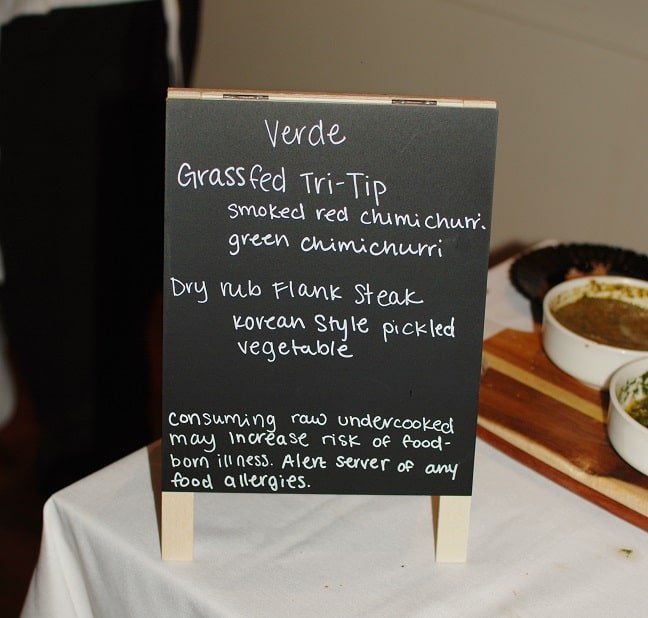 Verde
Grassfed Tri-Tip
smoked red chimichurri.
green chimichurri
Dry rub Flank Steak
Korean Style pickled
vegetable
consuming raw undercooked
may increase risk of food-
born illness. Alert server of any
food allergies.